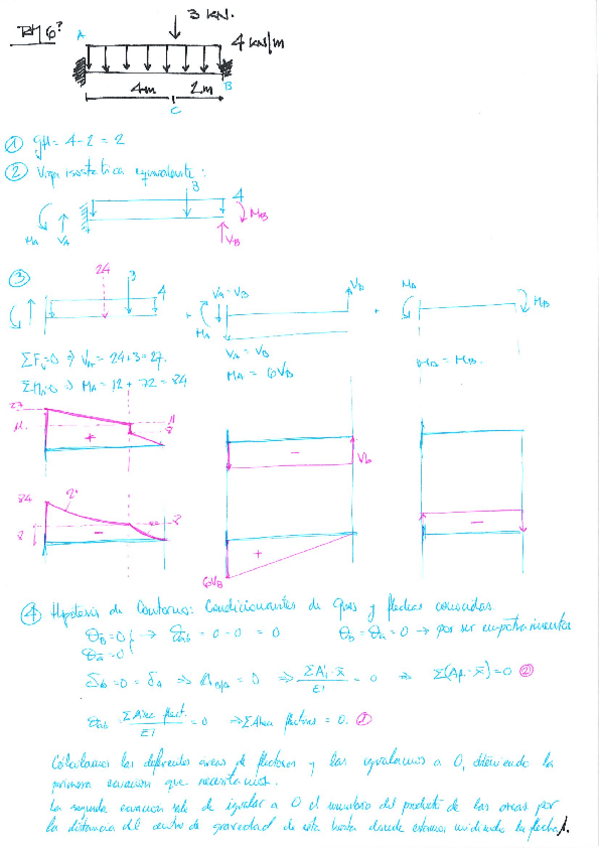 3 KN.
4 KN/m
A
4m
2m
B
C
① gH = 4-2 = 2
② Viga isostática equivalente:
3
4
MA
VA
VB
MB
③
24
3
4
VA = VB
VB
MA
MA
MB
+
+
ΣFv=0 ⇒ VA = 24+3=27.
VA = VB
ΣMA=0 ⇒ MA = 12 + 72 = 84
MA = 6VB
MA = MB.
27
11
11
8
+
-
VB
84
2º
8
8
-
+
-
6VB
④ Hipótesis de Contorno: Condicionantes de giros y flechas conocidas
θB=0
θA=0
→ θab = 0-0 = 0
θb = θa = 0 → por ser empotramientos
δb = 0 = δa ⇒ = 0 ⇒ ΣAi·x̄ / EI = 0 ⇒ Σ(Af·x̄)=0 ②
θab = ΣÁrea flect. / EI = 0 ⇒ ΣÁrea flectores = 0. ①
Calculamos las diferentes áreas de flectores y las igualamos a 0, obteniendo la
primera ecuación que necesitamos.
La segunda ecuación sale de igualar a 0 el sumatorio del producto de las áreas por
la distancia del centro de gravedad de esta hasta donde estemos midiendo la flecha.